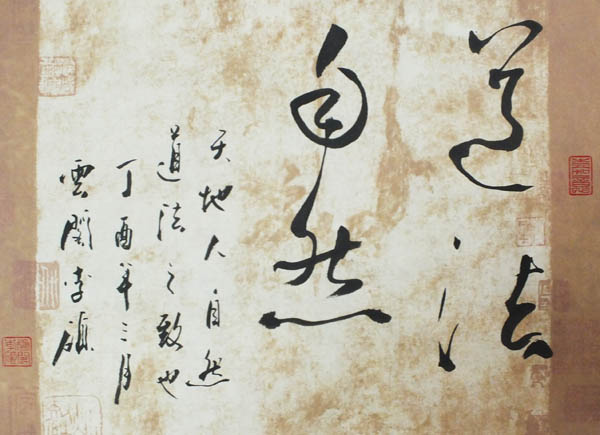 道法
自然
天地人自然
道法之致也
丁酉年三月
雲閒李碩